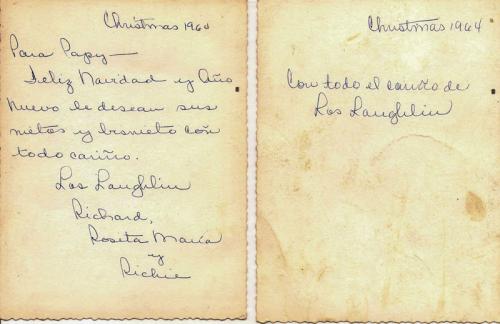 Christmas 1964
Para Papy—
Feliz Navidad y Año
Nuevo le desean sus
nietos y bisnieto con
todo cariño.
Los Laughlin
Richard,
Roseta Maria
y
Richie
Christmas 1964
Con todo el cariño de
Los Laughlin